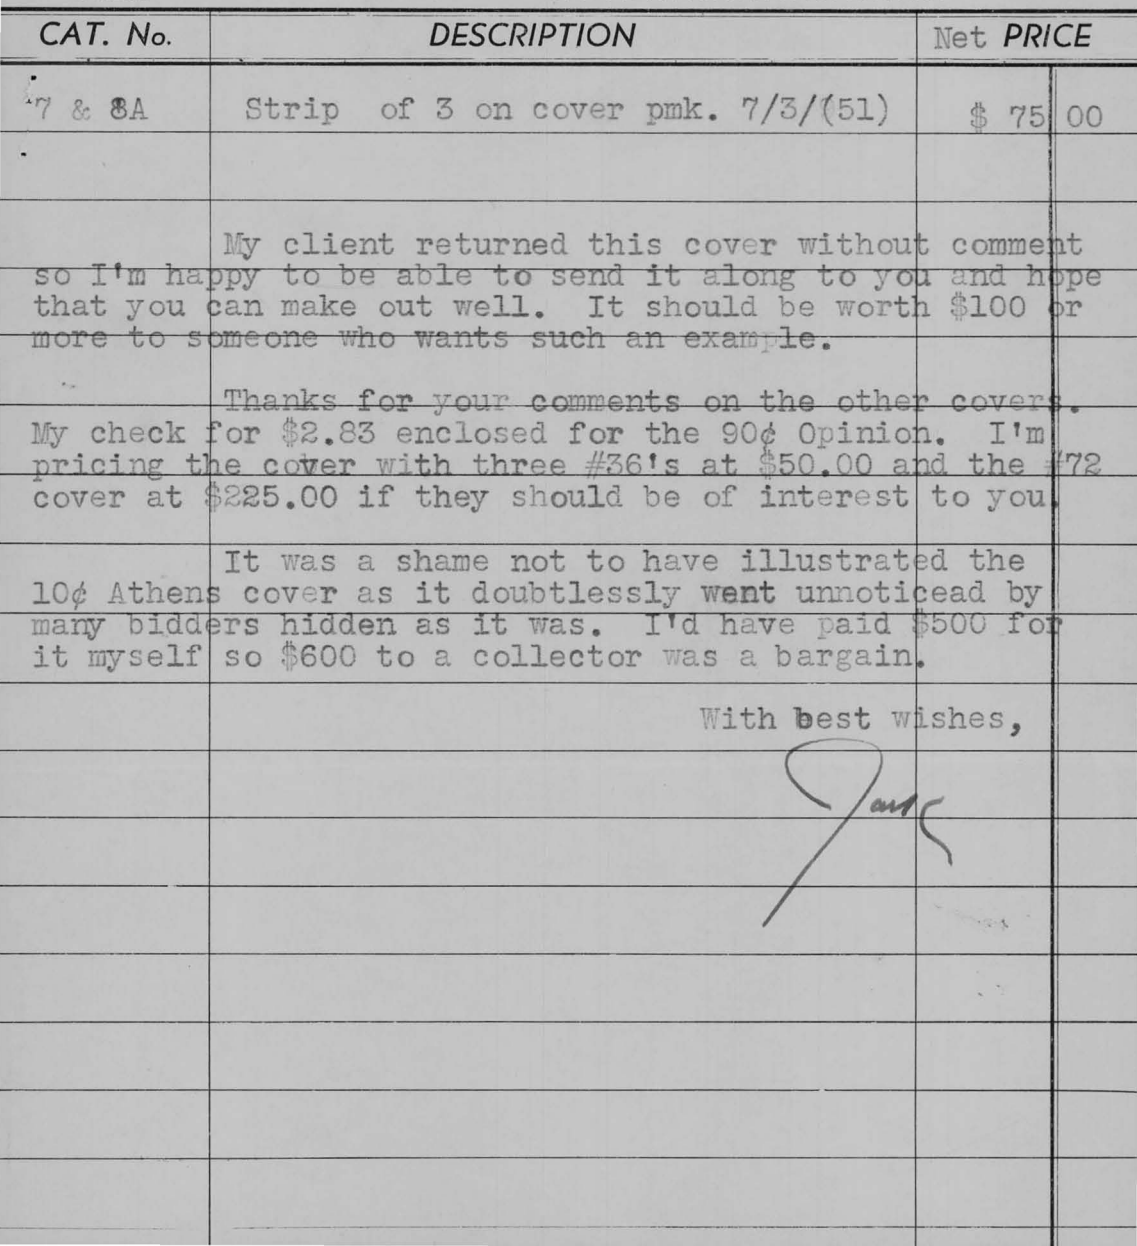 CAT. No. DESCRIPTION Net PRICE
7 & 8A Strip of 3 on cover pmk. 7/3/(51) $ 75 00
My client returned this cover without comment
so I'm happy to be able to send it along to you and hope
that you can make out well. It should be worth $100 or
more to someone who wants such an example.
Thanks for your comments on the other covers.
My check for $2.83 enclosed for the 90¢ Opinion. I'm
pricing the cover with three #36's at $50.00 and the #72
cover at $225.00 if they should be of interest to you.
It was a shame not to have illustrated the
10¢ Athens cover as it doubtlessly went unnoticead by
many bidders hidden as it was. I'd have paid $500 for
it myself so $600 to a collector was a bargain.
With best wishes,
Jack